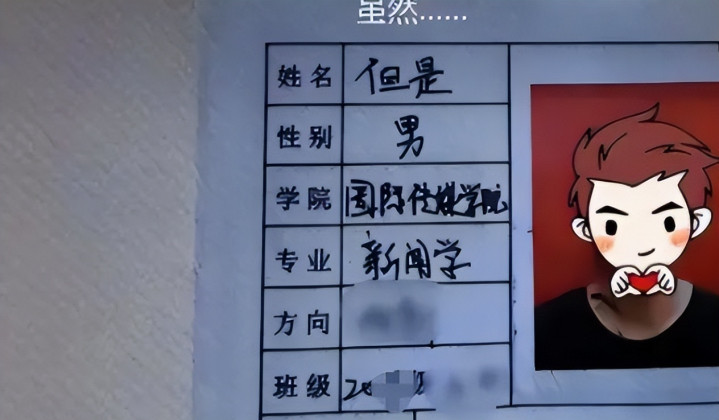 虽然......
姓名 但是
性别 男
学院 国际传媒学院
专业 新闻学
方向
班级 20